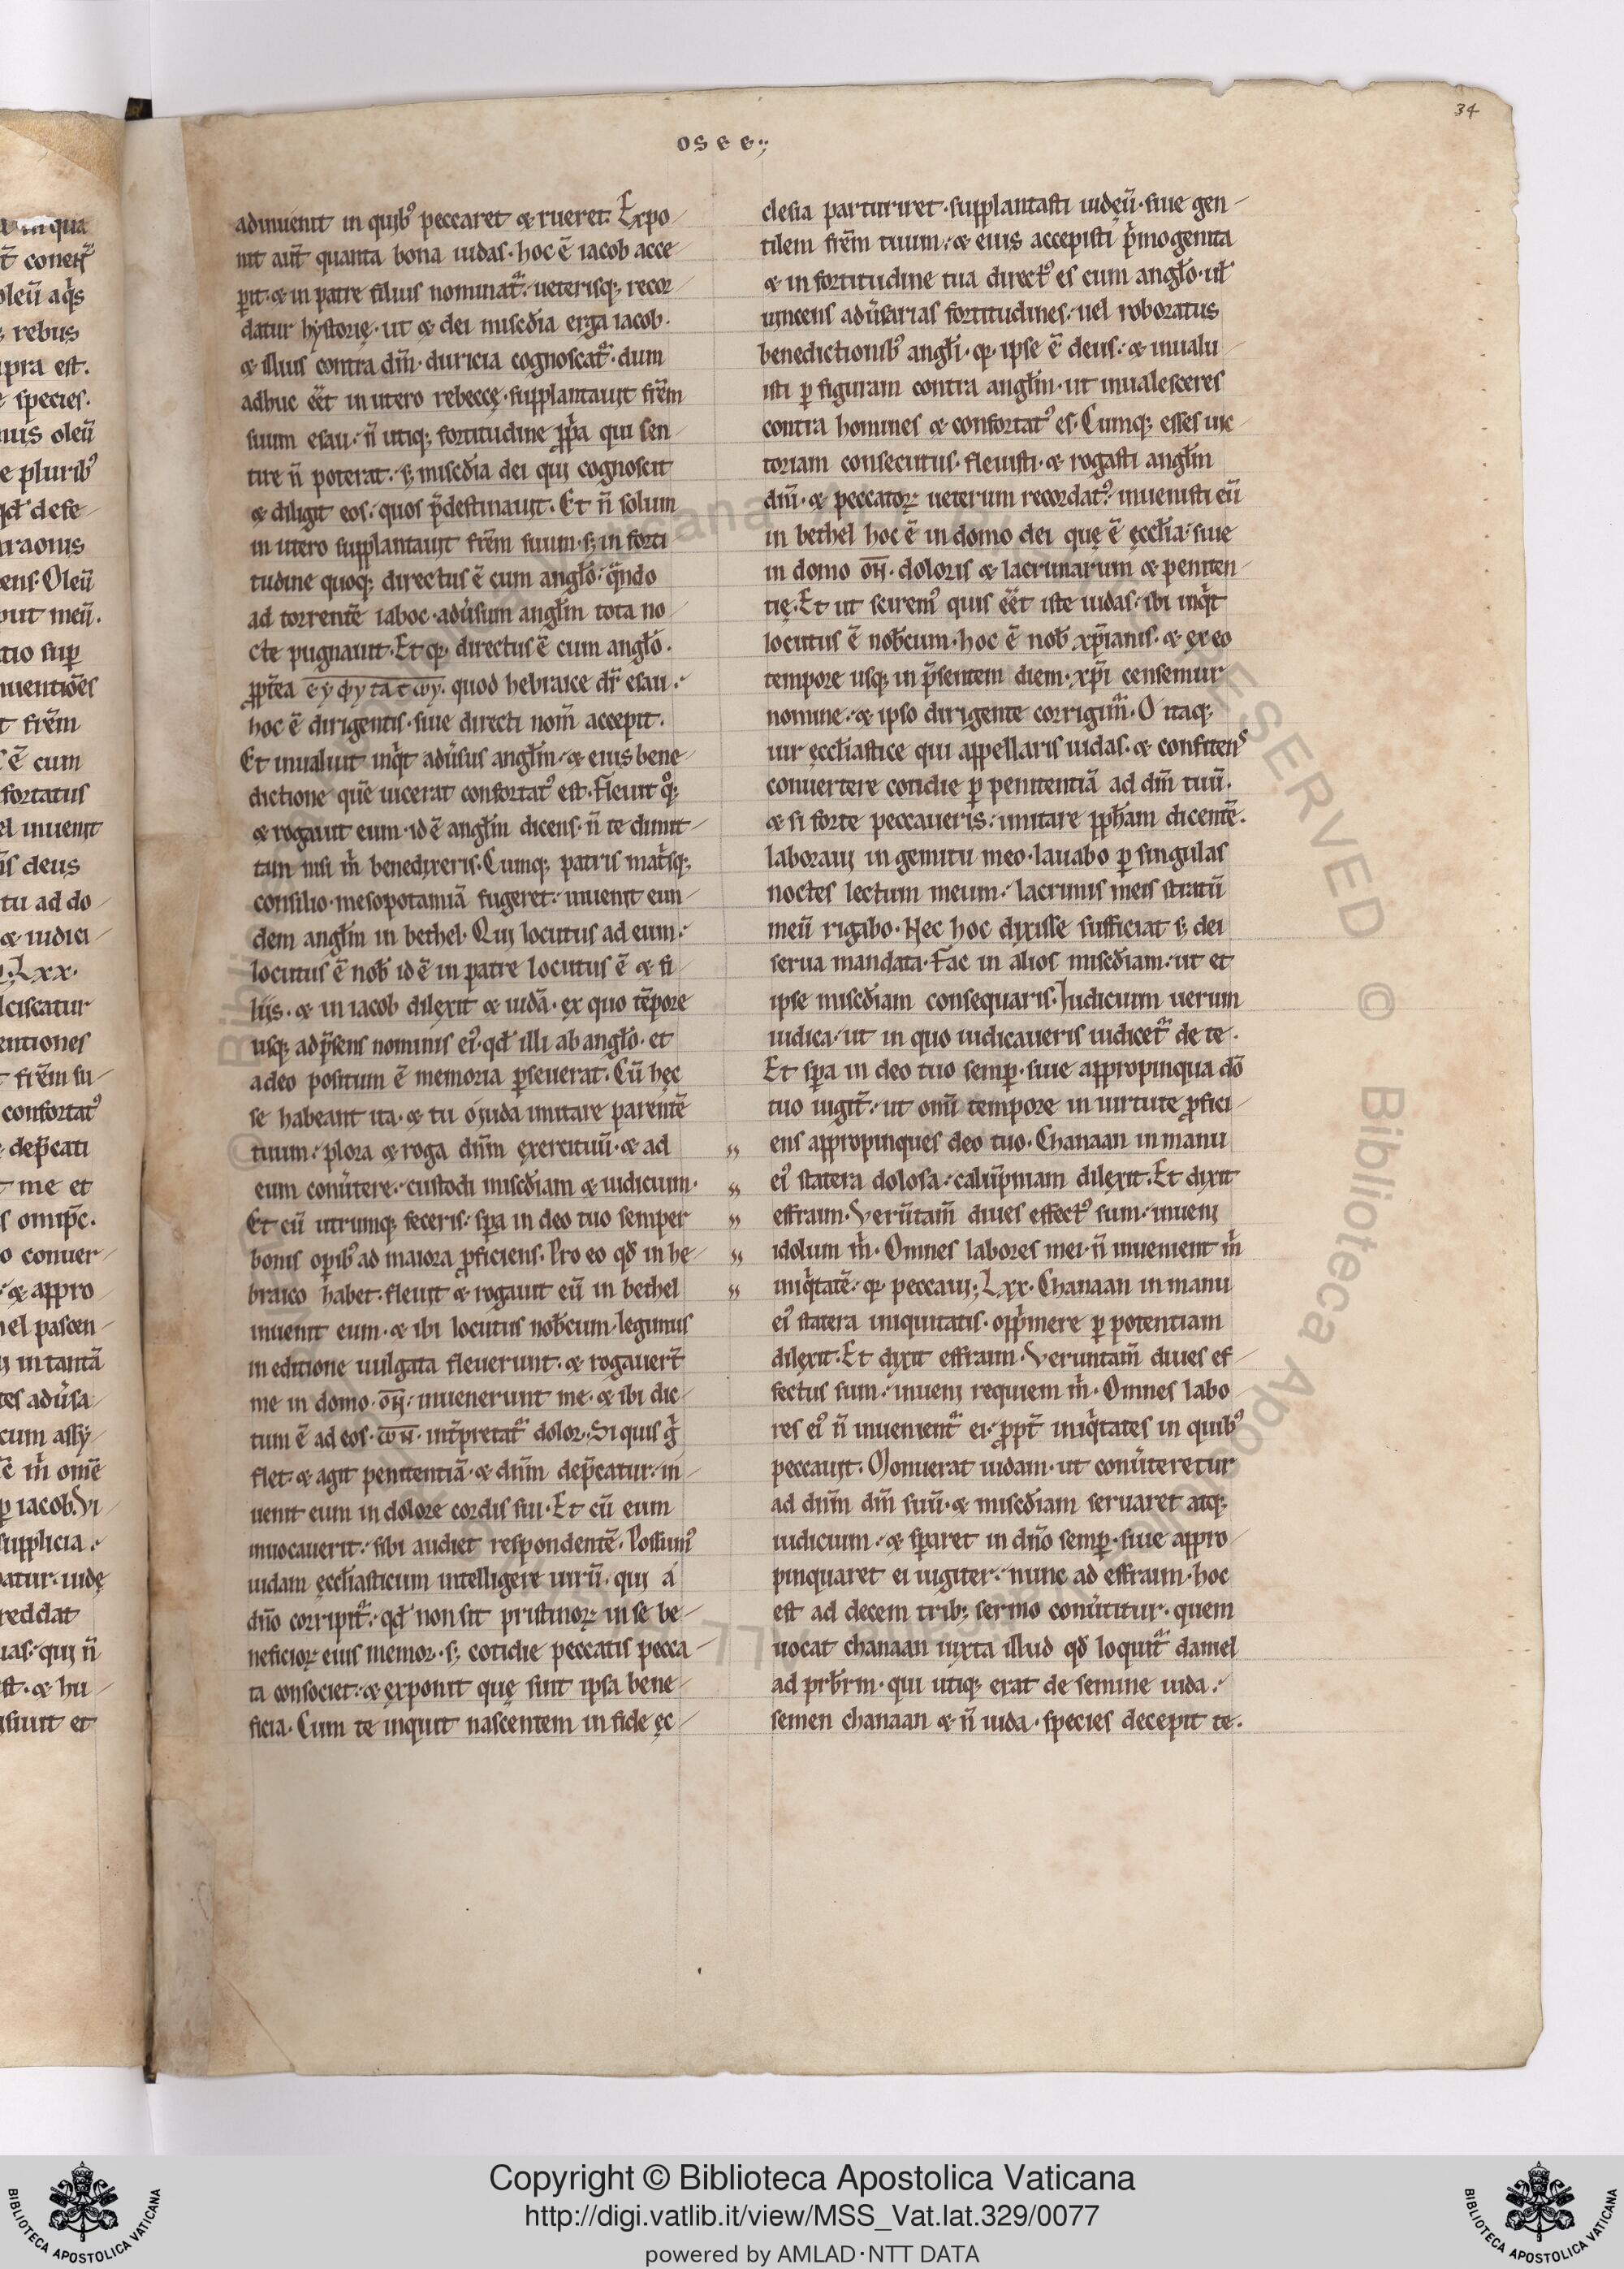 34
osee
adinuenit in quib᾽ peccaret & rueret. Expo
nit aut̃ quanta bona iudas. hoc ẽ iacob acce
pit. & in patre filius nominat᷑. ueterisq; recor
datur hystorię. ut & dei misc̃dia erga iacob.
& illius contra dm̃. duricia cognoscat᷑. dum
adhuc eẽt in utero rebeccę. supplantauit frẽm
suum esau. ñ utiq; fortitudine ꝓp̃a qui sen
tire ñ poterat. s; misc̃dia dei qui cognoscit
& diligit eos. quos p̃destinauit. Et ñ solum
in utero supplantauit frẽm suum. s; in forti
tudine quoq; directus ẽ cum angło. q̃ndo
ad torrentẽ iaboc. adu̾sum angłm tota no
cte pugnauit. Et q; directus ẽ cum angło.
ꝓpt̃ea εγφγτατωγ. quod hebraice dr̃ esau.
hoc ẽ dirigentis. siue directi nom̃ accepit.
Et inualuit inq̇t adu̾sus angłm. & eius bene
dictione quẽ uicerat confortat᾽ est. Fleuit q°;
& rogauit eum. id ẽ angłm dicens. ñ te dimit
tam nisi m̃ benedixeris. Cumq; patris mat̃sq;
consilio. mesopotamiã fugeret. inuenit eun
dem angłm in bethel. Qui locutus ad eum.
locutus ẽ nob̃ id ẽ in patre locutus ẽ & fi
liis. & in iacob dilexit & iudã. ex quo tẽpore
usq; ad p̃sens nominis ei᾽. qd̃ illi ab angło. et
a deo positum ẽ memoria ꝑseuerat. Cũ hęc
se habeant ita. & tu o iuda imitare parentẽ
tuum. plora & roga dnm̃ exercituũ. & ad
eum conu̾tere. custodi misc̃diam & iudicium.
Et cũ utrumq; feceris. spa in deo tuo semper
bonis opib᾽ ad maiora ꝓficiens. Pro eo qd̃ in he
braico habet. fleuit & rogauit eũ in bethel
inuenit eum. & ibi locutus nob̃cum. legimus
in editione uulgata fleuerunt. & rogauer̃t
me in domo. ωн. inuenerunt me. & ibi dic
tum ẽ ad eos. ωн. int̃pretat᷑ dolor. Si quis g̃
flet. & agit penitentiã. & dnm̃ dep̃catur. in
uenit eum in dolore cordis sui. Et cũ eum
inuocauerit. sibi audiet respondentẽ. Possum᾽
iudam ęcclłasticum intelligere uirũ. qui á
dño corripit᷑. qd̃ non sit pristinoꝝ in se be
neficioꝝ eius memor. s; cotidie peccatis pecca
ta consociet. & exponit quę sint ipsa bene
ficia. Cum te inquit nascentem in fide ęc
clesia parturiret. supplantasti iudęũ. siue gen
tilem frẽm tuum. & eius accepisti p̃mogenita
& in fortitudine tua direct᾽ es cum angło. uł
uincens adu̾sarias fortitudines. uel roboratus
benedictionib᾽ angłi. q; ipse ẽ deus. & inualu
isti ꝑ figuram contra angłm. ut inualesceres
contra homines & confortat᾽ es. Cumq; esses uic
toriam consecutus. fleuisti. & rogasti angłm
dm̃. & peccatoꝝ ueterum recordat᾽. inuenisti eũ
in bethel hoc ẽ in domo dei quę ẽ ęccłia. siue
in domo ωн. doloris & lacrimarum & peniten
tię. Et ut scirem᾽ quis eẽt iste iudas. ibi inq̇t
locutus ẽ nob̃cum. hoc ẽ nob̃ xp̃ianis. & ex eo
tempore usq; in p̃sentem diem. xp̃i censemur
nomine. & ipso dirigente corrigim᷑. O itaq;
uir ęccłiastice qui appellaris iudas. & confitens
conuertere cotidie ꝑ penitentiã ad dm̃ tuũ.
& si forte peccaueris. imitare ꝓpħam dicentẽ.
laboraui in gemitu meo. lauabo ꝑ singulas
noctes lectum meum. lacrimis meis stratũ
meũ rigabo. Nec hoc dixisse sufficiat s; dei
serua mandata. Fac in alios misc̃diam. ut et
ipse misc̃diam consequaris. Iudicium uerum
iudica. ut in quo iudicaueris iudicet᷑ de te.
Et spa in deo tuo semꝑ. siue appropinqua dõ
tuo iugit̃. ut omi tempore in uirtute ꝓfici
ens appropinques deo tuo. Chanaan in manu
ei᾽ statera dolosa. calup̃niam dilexit. Et dixit
effraim. Verũtam̃ diues effect᾽ sum. inueni
idolum m̃. Omnes labores mei. ñ inuenient m̃
iniq̇tatẽ. q; peccaui. Lxx. Chanaan in manu
ei᾽ statera iniquitatis. opp̃imere ꝑ potentiam
dilexit. Et dixit effraim. Veruntam̃ diues ef
fectus sum. inueni requiem m̃. Omnes labo
res ei᾽ ñ inuenient᷑ ei. ꝓpt̃ iniq̇tates in quib᾽
peccauit. Monuerat iudam. ut conu̾teretur
ad dnm̃ dm̃ suũ. & misc̃diam seruaret atq;
iudicium. & sꝑaret in dño semꝑ. siue appro
pinquaret ei iugiter. nunc ad effraim. hoc
est ad decem trib; sermo conu̾titur. quem
uocat chanaan iuxta illud qd̃ loquit᷑ daniel
ad prb̃rm. qui utiq; erat de semine iuda.
semen chanaan & ñ iuda. species decepit te.
Copyright © Biblioteca Apostolica Vaticana
http://digi.vatlib.it/view/MSS_Vat.lat.329/0077
powered by AMLAD·NTT DATA
BIBLIOTECA APOSTOLICA VATICANA
BIBLIOTECA APOSTOLICA VATICANA